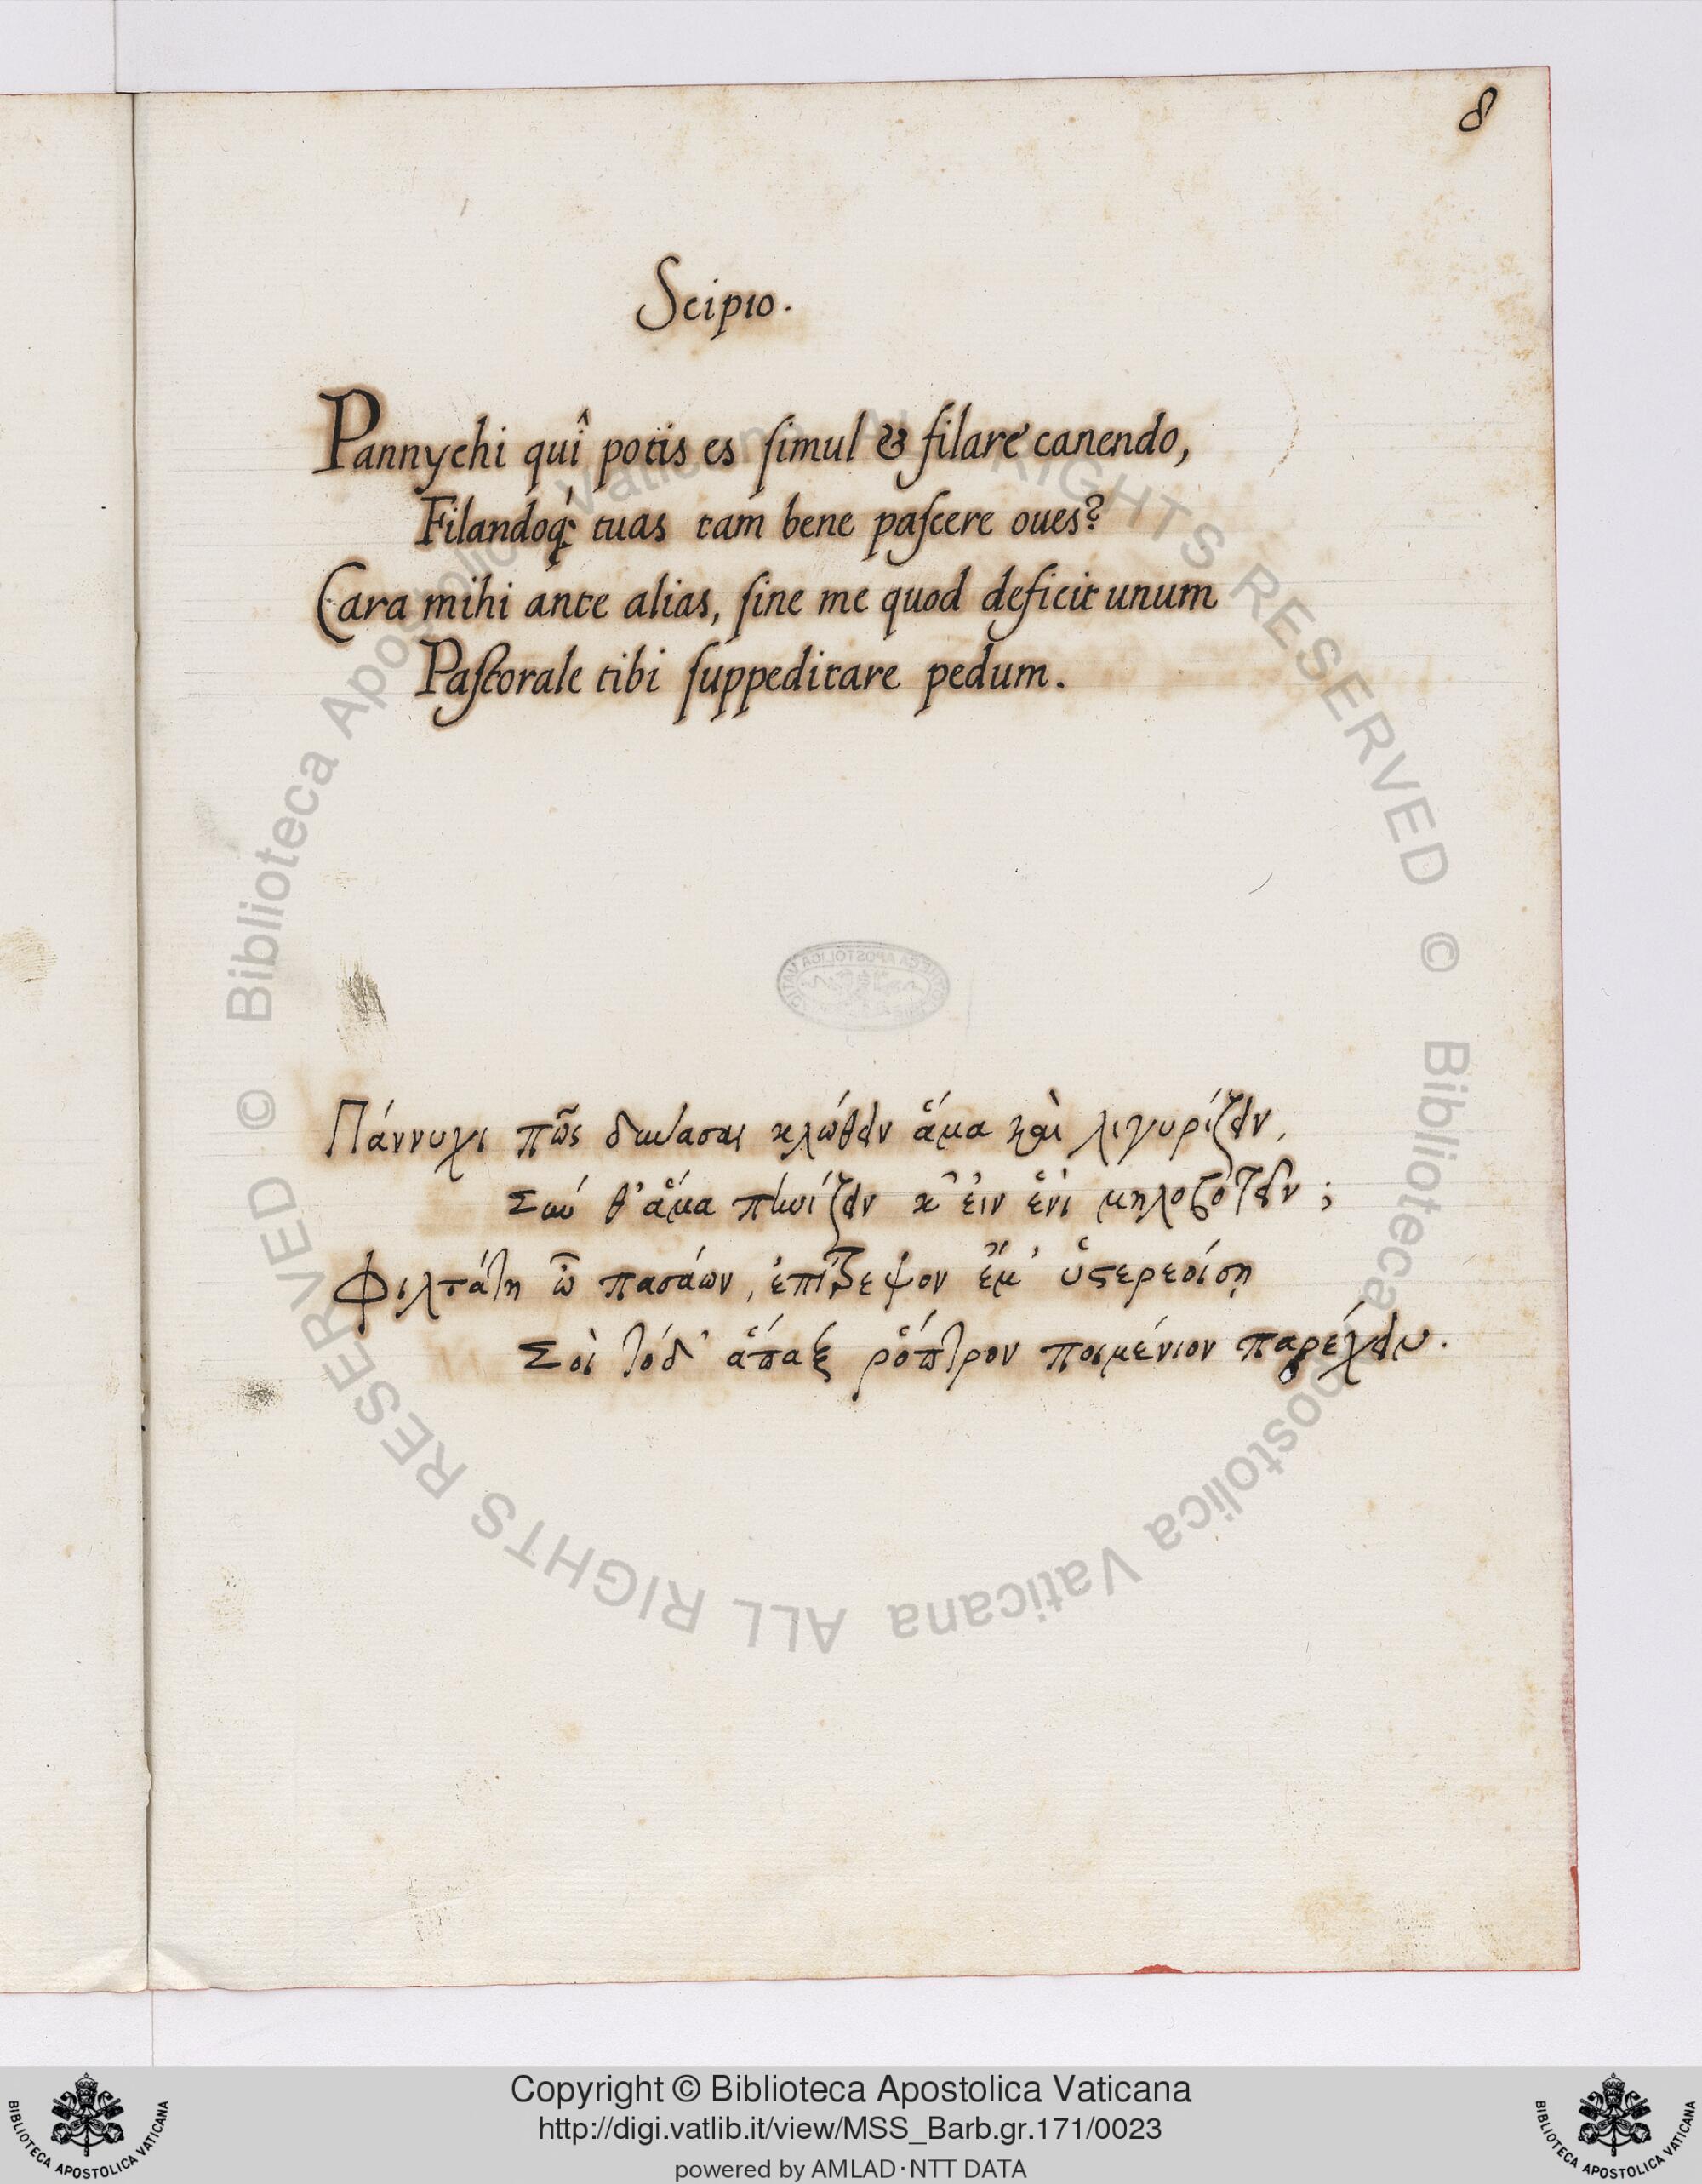 8
Scipio.
Pannychi quî potis es ſimul & filare canendo,
Filandoq́; tuas tam bene paſcere oues?
Cara mihi ante alias, ſine me quod deficit unum
Paſtorale tibi ſuppeditare pedum.
Πάννυχι πῶς δύνασαι κλώθειν ἅμα καὶ λιγυρίζειν,
Σὺν θ' ἅμα πηνίζειν κ' εἰν ἑνὶ μηλοβοτεῖν;
Φιλτάτη ὦ πασάων, ἐπίτρεψον ἔμ'
Σοὶ τόδ' ἅπαξ ῥόπτρον ποιμένιον παρέχειν.
© Biblioteca Apostolica Vaticana ALL RIGHTS RESERVED © Biblioteca Apostolica Vaticana ALL RIGHTS RESERVED
Copyright © Biblioteca Apostolica Vaticana
http://digi.vatlib.it/view/MSS_Barb.gr.171/0023
powered by AMLAD·NTT DATA
BIBLIOTECA APOSTOLICA VATICANA
BIBLIOTECA APOSTOLICA VATICANA